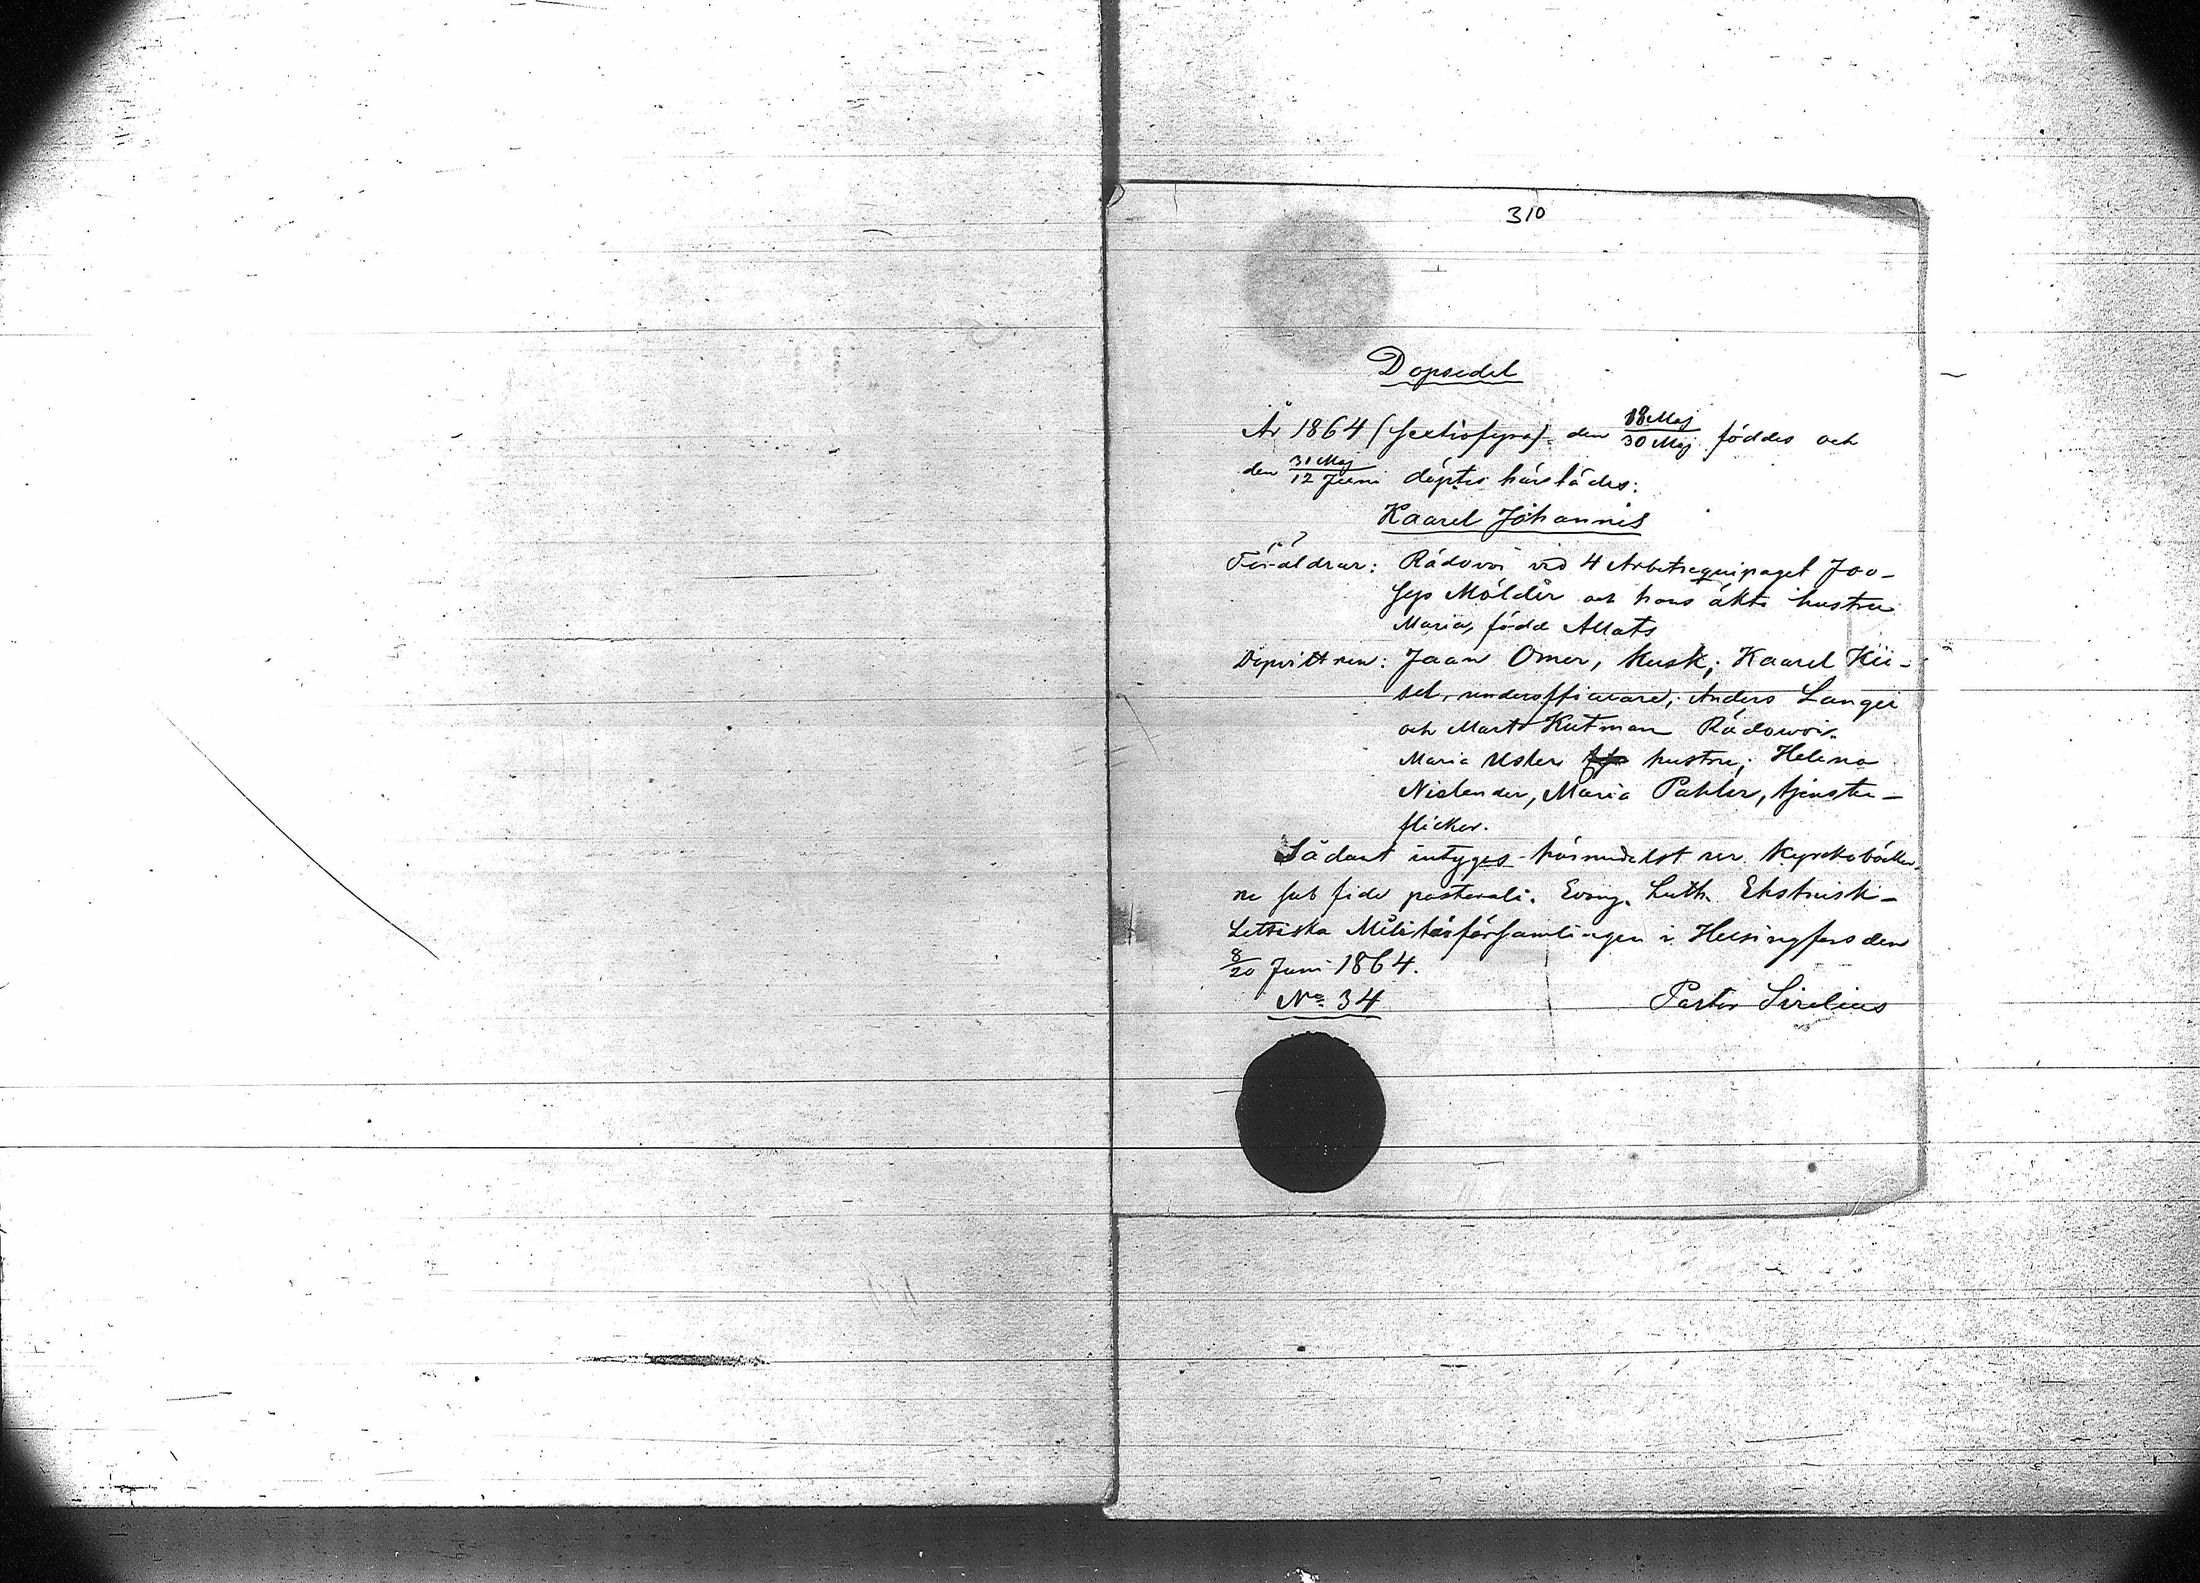 310
Dopsedel
År 1864 (sextiofyra) den 18 Maj / 30 Maj föddes och
den 31 Maj / 12 Juni döptes härstädes:
Kaarel Johannes
Föräldrar: Rädovoi vid 4 Arbetsequipaget Joo-
sep Mölder och hans äkta hustru
Maria, född Allats
Dopvittnen: Jaan Omer, Kusk; Kaarel Kii-
sel, underofficerare; Anders Langer
och Mart Kutman Rädowoi.
Maria hustru; Helena
Nielander, Maria Pahler, tjenste-
flickor.
Sådant intyges härmedelst ur Kyrkoböcker-
ne sub fide pastorali. Evang. Luth. Ehstnisk-
Lettiska Militärförsamlingen i Helsingfors den
8/20 Juni 1864.
No. 34 Pastor Sirelius